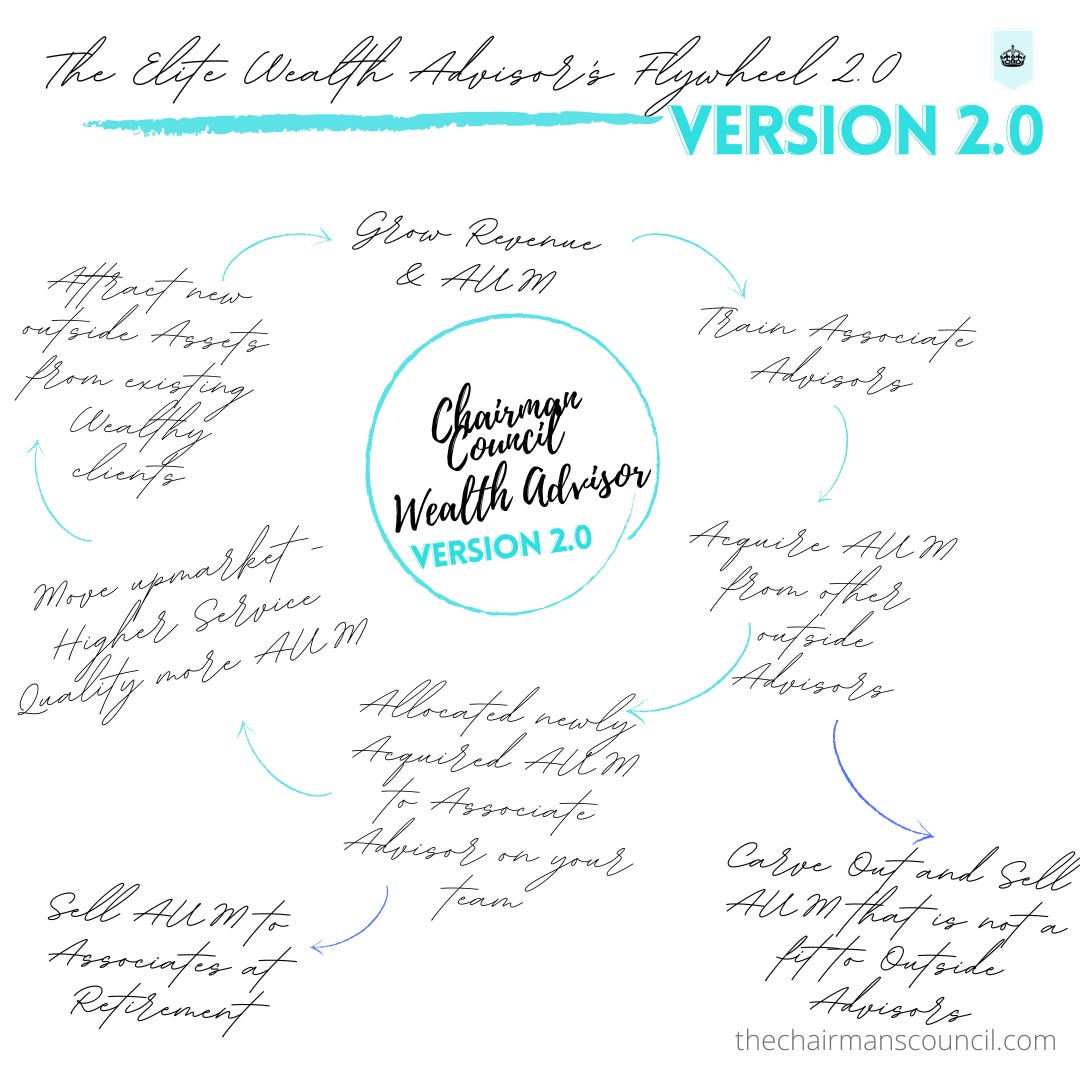 The Elite Wealth Advisor's Flywheel 2.0
VERSION 2.0
Grow Revenue
& AUM
Train Associate
Advisors
Acquire AUM
from other
outside
Advisors
Carve Out and Sell
AUM that is not a
fit to Outside
Advisors
Allocated newly
Acquired AUM
to Associate
Advisor on your
team
Sell AUM to
Associates at
Retirement
Move upmarket -
Higher Service
Quality more AUM
Attract new
outside Assets
from existing
Wealthy
clients
Chairman
Council
Wealth Advisor
VERSION 2.0
thechairmanscouncil.com